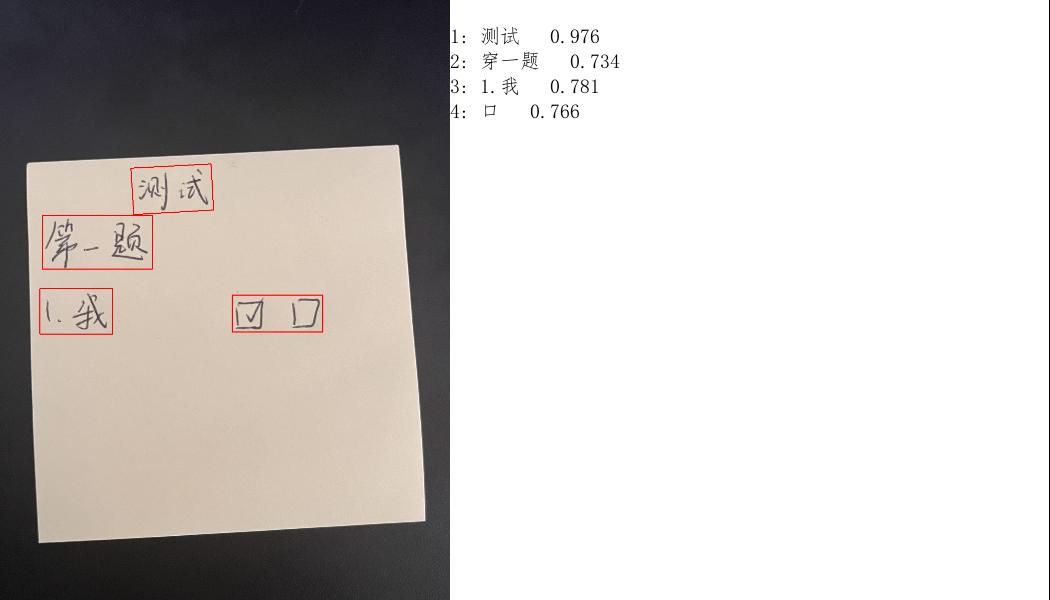 测试
第一题
1.我 ☑ □
1: 测试 0.976
2: 穿一题 0.734
3: 1.我 0.781
4: 口 0.766